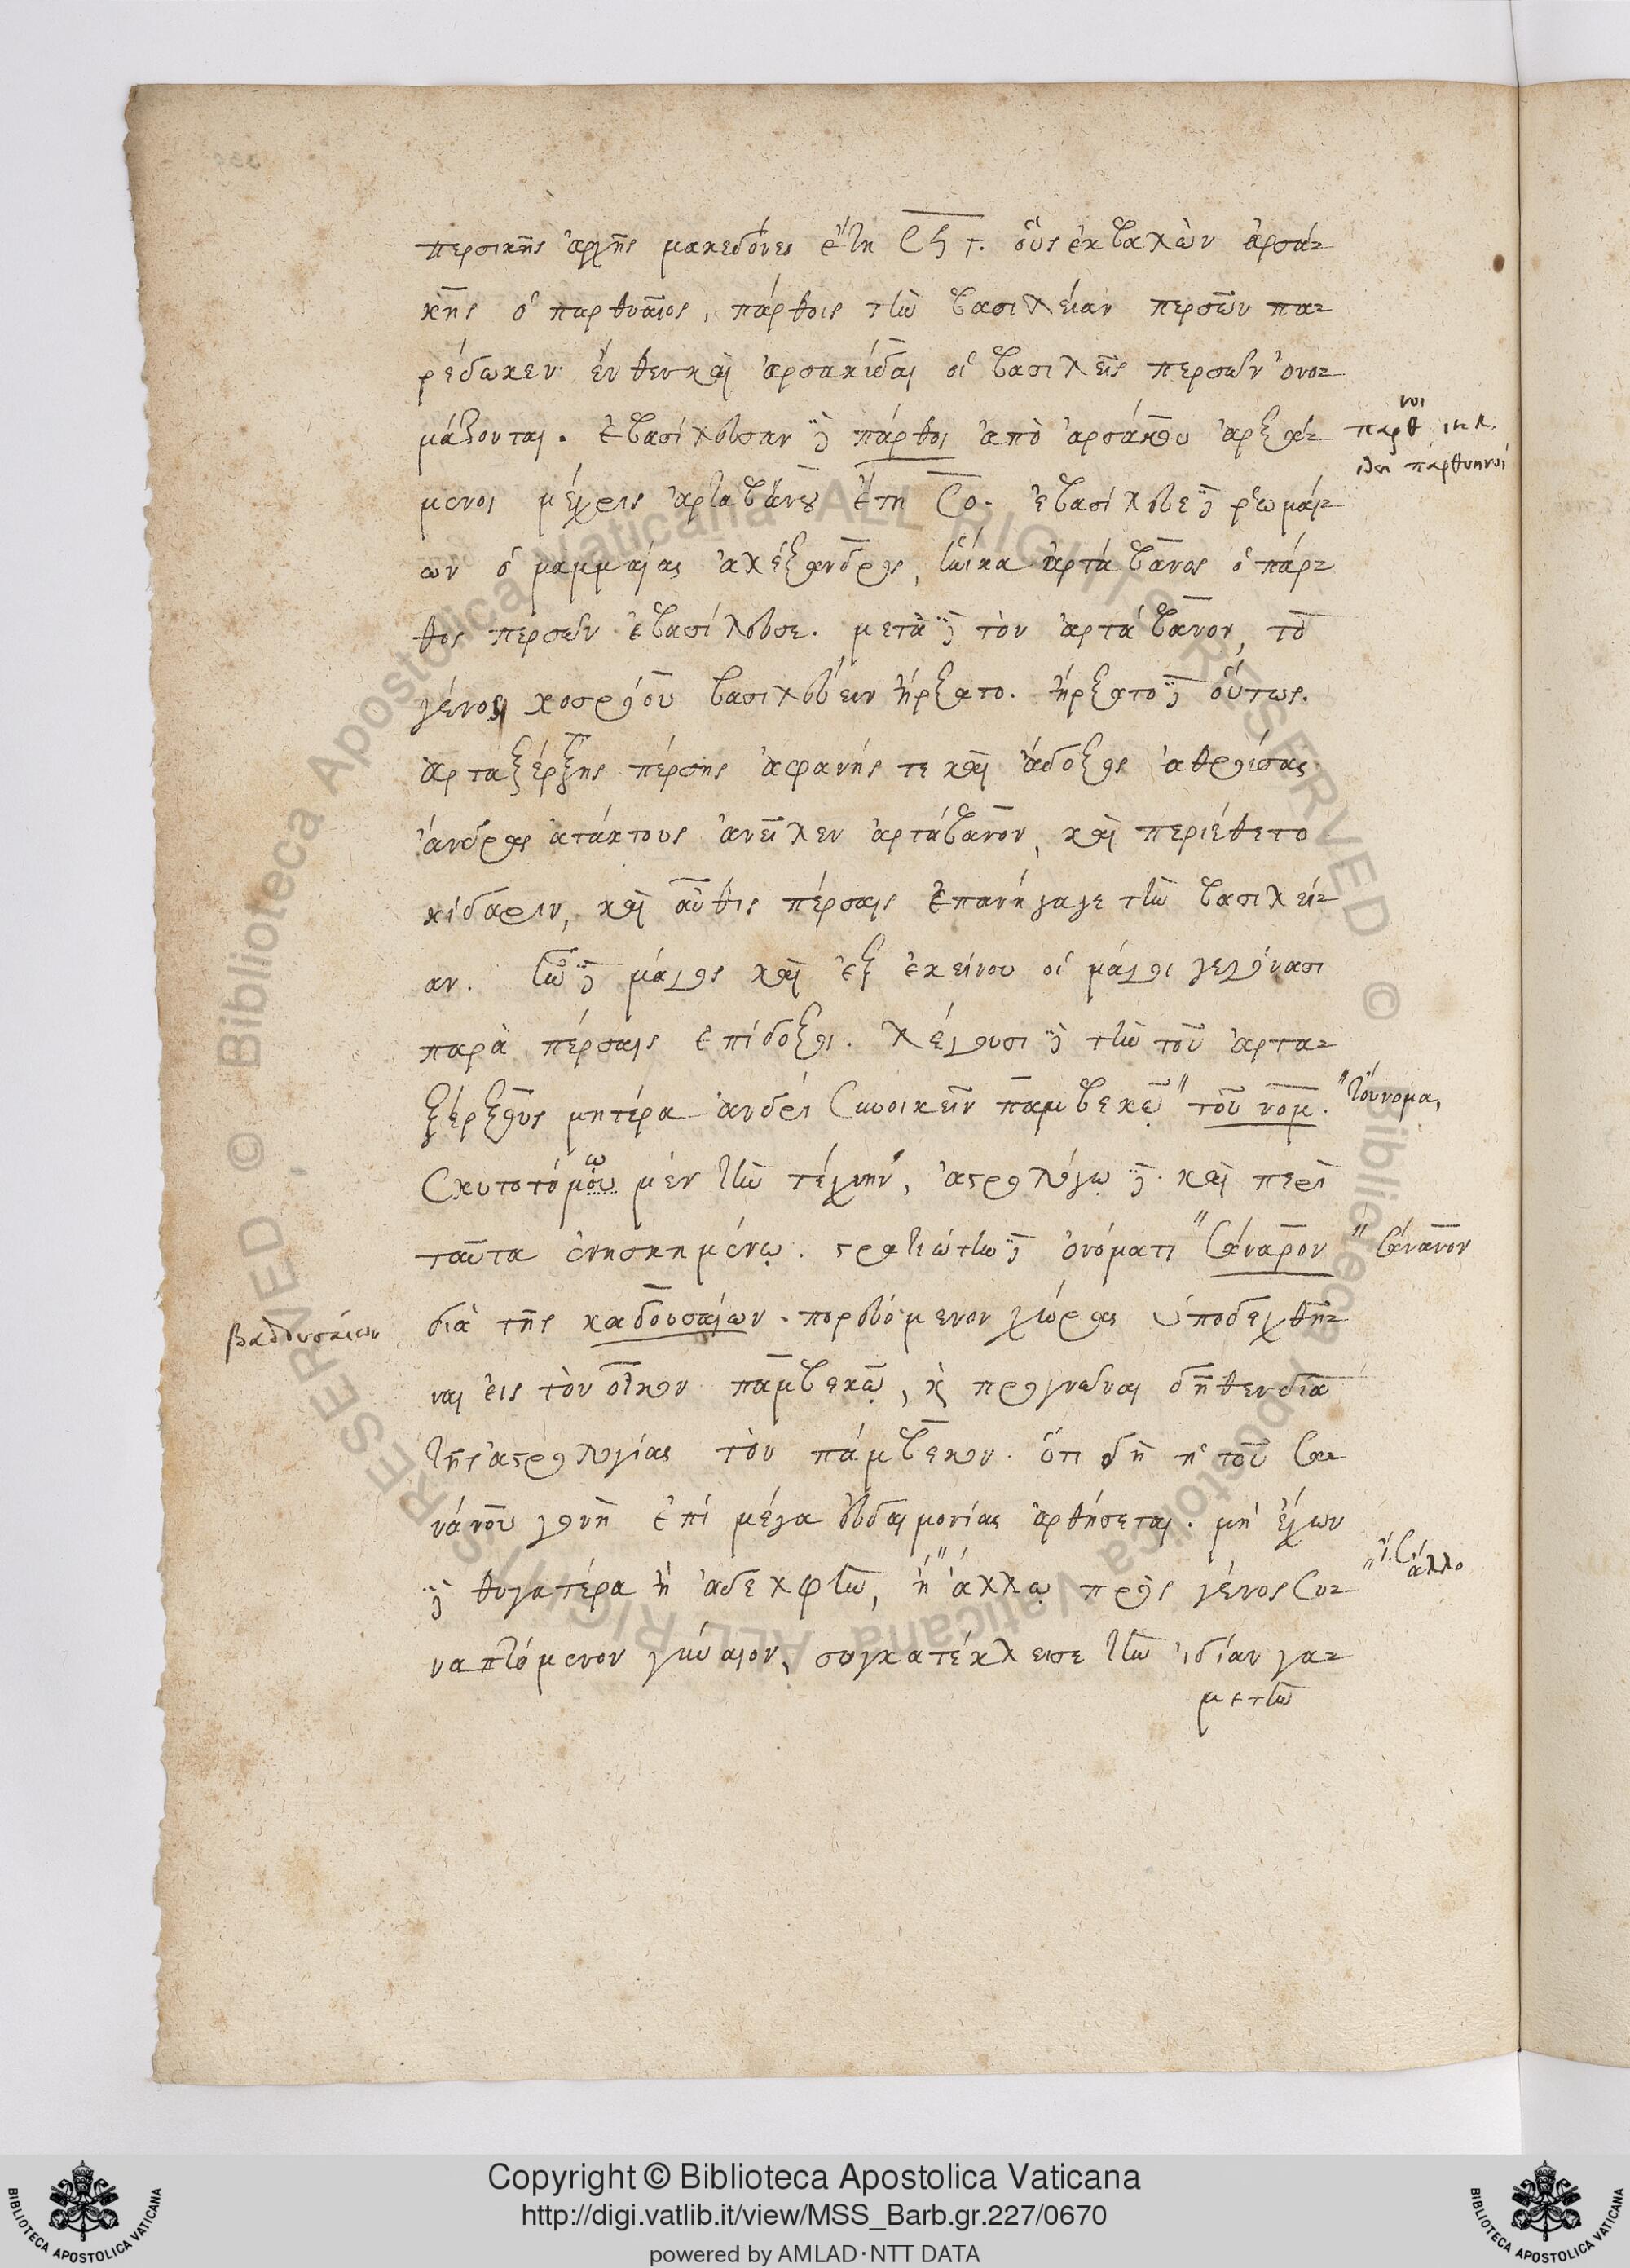 περσικῆς ἀρχῆς μακεδόνες ἔτη ϲϟϛ. οὓς ἐκβαλὼν ἀρσά-
κης ὁ παρθυαῖος, πάρθοις τὴν βασιλείαν περσῶν πα-
ρέδωκεν· ἔνθεν καὶ ἀρσακίδαι οἱ βασιλεῖς περσῶν ὀνο-
μάζονται. ἐβασίλευσαν δὲ πάρθοι ἀπὸ ἀρσάκου ἀρξά-
μενοι μέχρις ἀρταβάνου ἔτη ϲο. ἐβασίλευε δὲ ῥωμαί-
ων ὁ μαμμαίας ἀλέξανδρος, ἡνίκα ἀρτάβανος ὁ πάρ-
θος περσῶν ἐβασίλευσε. μετὰ δὲ τὸν ἀρτάβανον, τὸ
γένος χοσρόου βασιλεύειν ἤρξατο. ἤρξατο δὲ οὕτως.
ἀρταξέρξης πέρσης ἀφανής τε καὶ ἄδοξος ἀθροίσας
ἄνδρας ἀτάκτους ἀνεῖλεν ἀρτάβανον, καὶ περιέθετο
κίδαριν, καὶ αὖθις πέρσαις ἐπανήγαγε τὴν βασιλεί-
αν. ἦν δὲ μάγος καὶ ἐξ ἐκείνου οἱ μάγοι γεγόνασι
παρὰ πέρσαις ἐπίδοξοι. λέγουσι δὲ τὴν τοῦ ἀρτα-
ξέρξους μητέρα ἀνδρὶ συνοικεῖν παμβέκῳ " τοὔνομ. " τοὔνομα,
σκυτοτόμου μὲν τὴν τέχνην, ἀστρολόγῳ δὲ καὶ περὶ
ταῦτα ἐνησκημένῳ. στρατιώτην δὲ ὀνόματι " σάναρον " σάνανον
βαδδουσαίων
διὰ τῆς καδουσαίων πορευόμενον χώρας ὑποδεχθῆ-
ναι εἰς τὸν οἶκον παμβέκῳ, κ προγνῶναι δῆθεν διὰ
τῆς ἀστρολογίας τὸν πάμβεκον. ὅτι δὴ ἡ τοῦ σα-
νάνου γονὴ ἐπὶ μέγα εὐδαιμονίας ἀρθήσεται. μὴ ἔχων
δὲ θυγατέρα ἢ ἀδελφὴν, ἢ " ἄλλῳ πρὸς γένος συ- " ἄλλο
ναπτόμενον γύναιον, συγκατέκλεισε τὴν ἰδίαν γα-
μετὴν